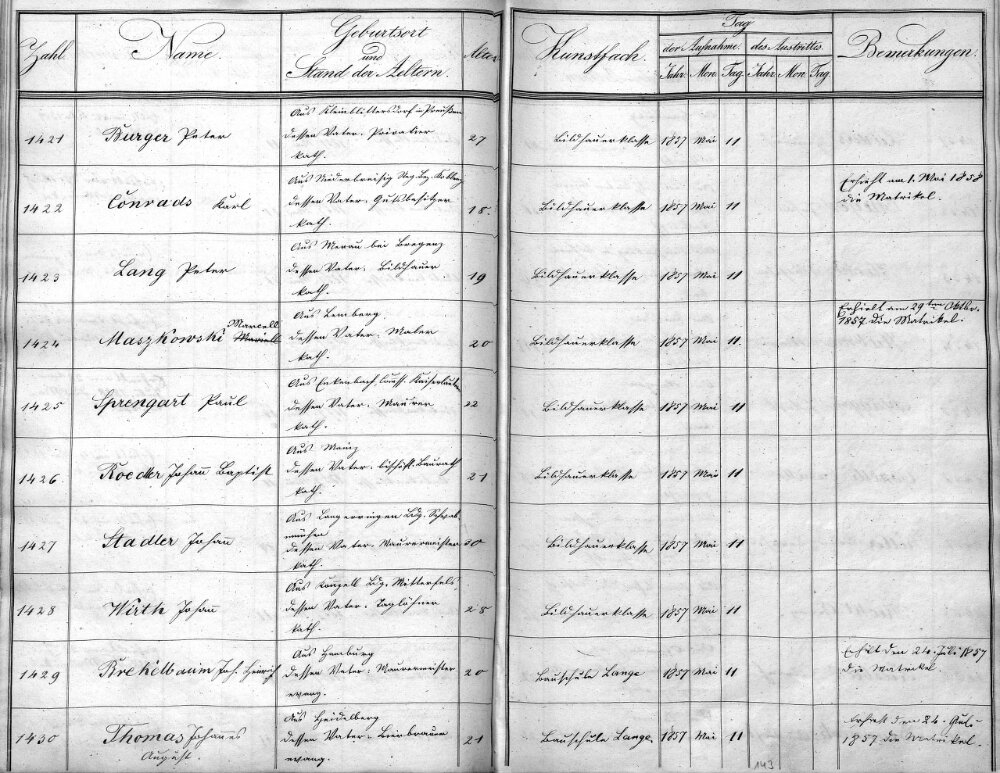 Zahl. Name. Geburtsort und Stand der Aeltern. Alter Kunstfach. Tag der Aufnahme. des Austrittes. Bemerkungen.
Jahr. Mon. Tag. Jahr. Mon. Tag.
Aus Kleinblittersdorf in Preußen
1421 Burger Peter dessen Vater: Privatier 27 Bildhauerklasse 1857 Mai 11
kath.
Aus Niederbreisig Reg. Bz. Koblenz Erhielt am 1. Mai 1858
1422 Conrads Karl dessen Vater: Gutsbesitzer 18. Bildhauerklasse 1857 Mai 11 die Matrikel.
kath.
Aus Merau bei Bregenz
1423 Lang Peter dessen Vater: Bildhauer 19 Bildhauerklasse 1857 Mai 11
kath.
Aus Lemberg Erhielt am 29ten Oktbr.
Marcell 1857 die Matrikel.
1424 Maszkowski dessen Vater: Maler 20 Bildhauerklasse 1857 Mai 11
kath.
Aus Enkenbach, Kaiserslautern
1425 Sprengart Paul dessen Vater: Maurer 22 Bildhauerklasse 1857 Mai 11
kath.
Aus Mainz
1426 Roeder Johann Baptist dessen Vater: bischöfl. Baurath 21 Bildhauerklasse 1857 Mai 11
kath.
Aus Langerringen Ldg. Schwab-
münchen
1427 Stadler Johann dessen Vater: Maurermeister 30 Bildhauerklasse 1857 Mai 11
kath.
Aus Konzell Ldg. Mitterfels,
1428 Wirth Johann dessen Vater: Taglöhner 25 Bildhauerklasse 1857 Mai 11
kath.
Aus Hamburg Erhilt den 24. Juli 1857
1429 Brekelbaum Joh. Heinrich dessen Vater: Maurermeister 20 Bauschule Lange 1857 Mai 11 die Matrikel.
evang.
Aus Heidelberg Erhielt den 24. Juli
1430 Thomas Johanes dessen Vater: Bierbrauer 21 Bauschule Lange. 1857 Mai 11 1857 die Matrikel.
August. evang.
143